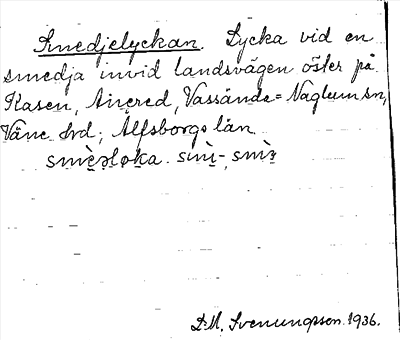 Smedjelyckan. Lycka vid en
smedja invid landsvägen öster på
Kasen, Anered, Vassända=Naglum sn,
Väne hrd; Älfsborgs län
D.M. Svenungsson. 1936.